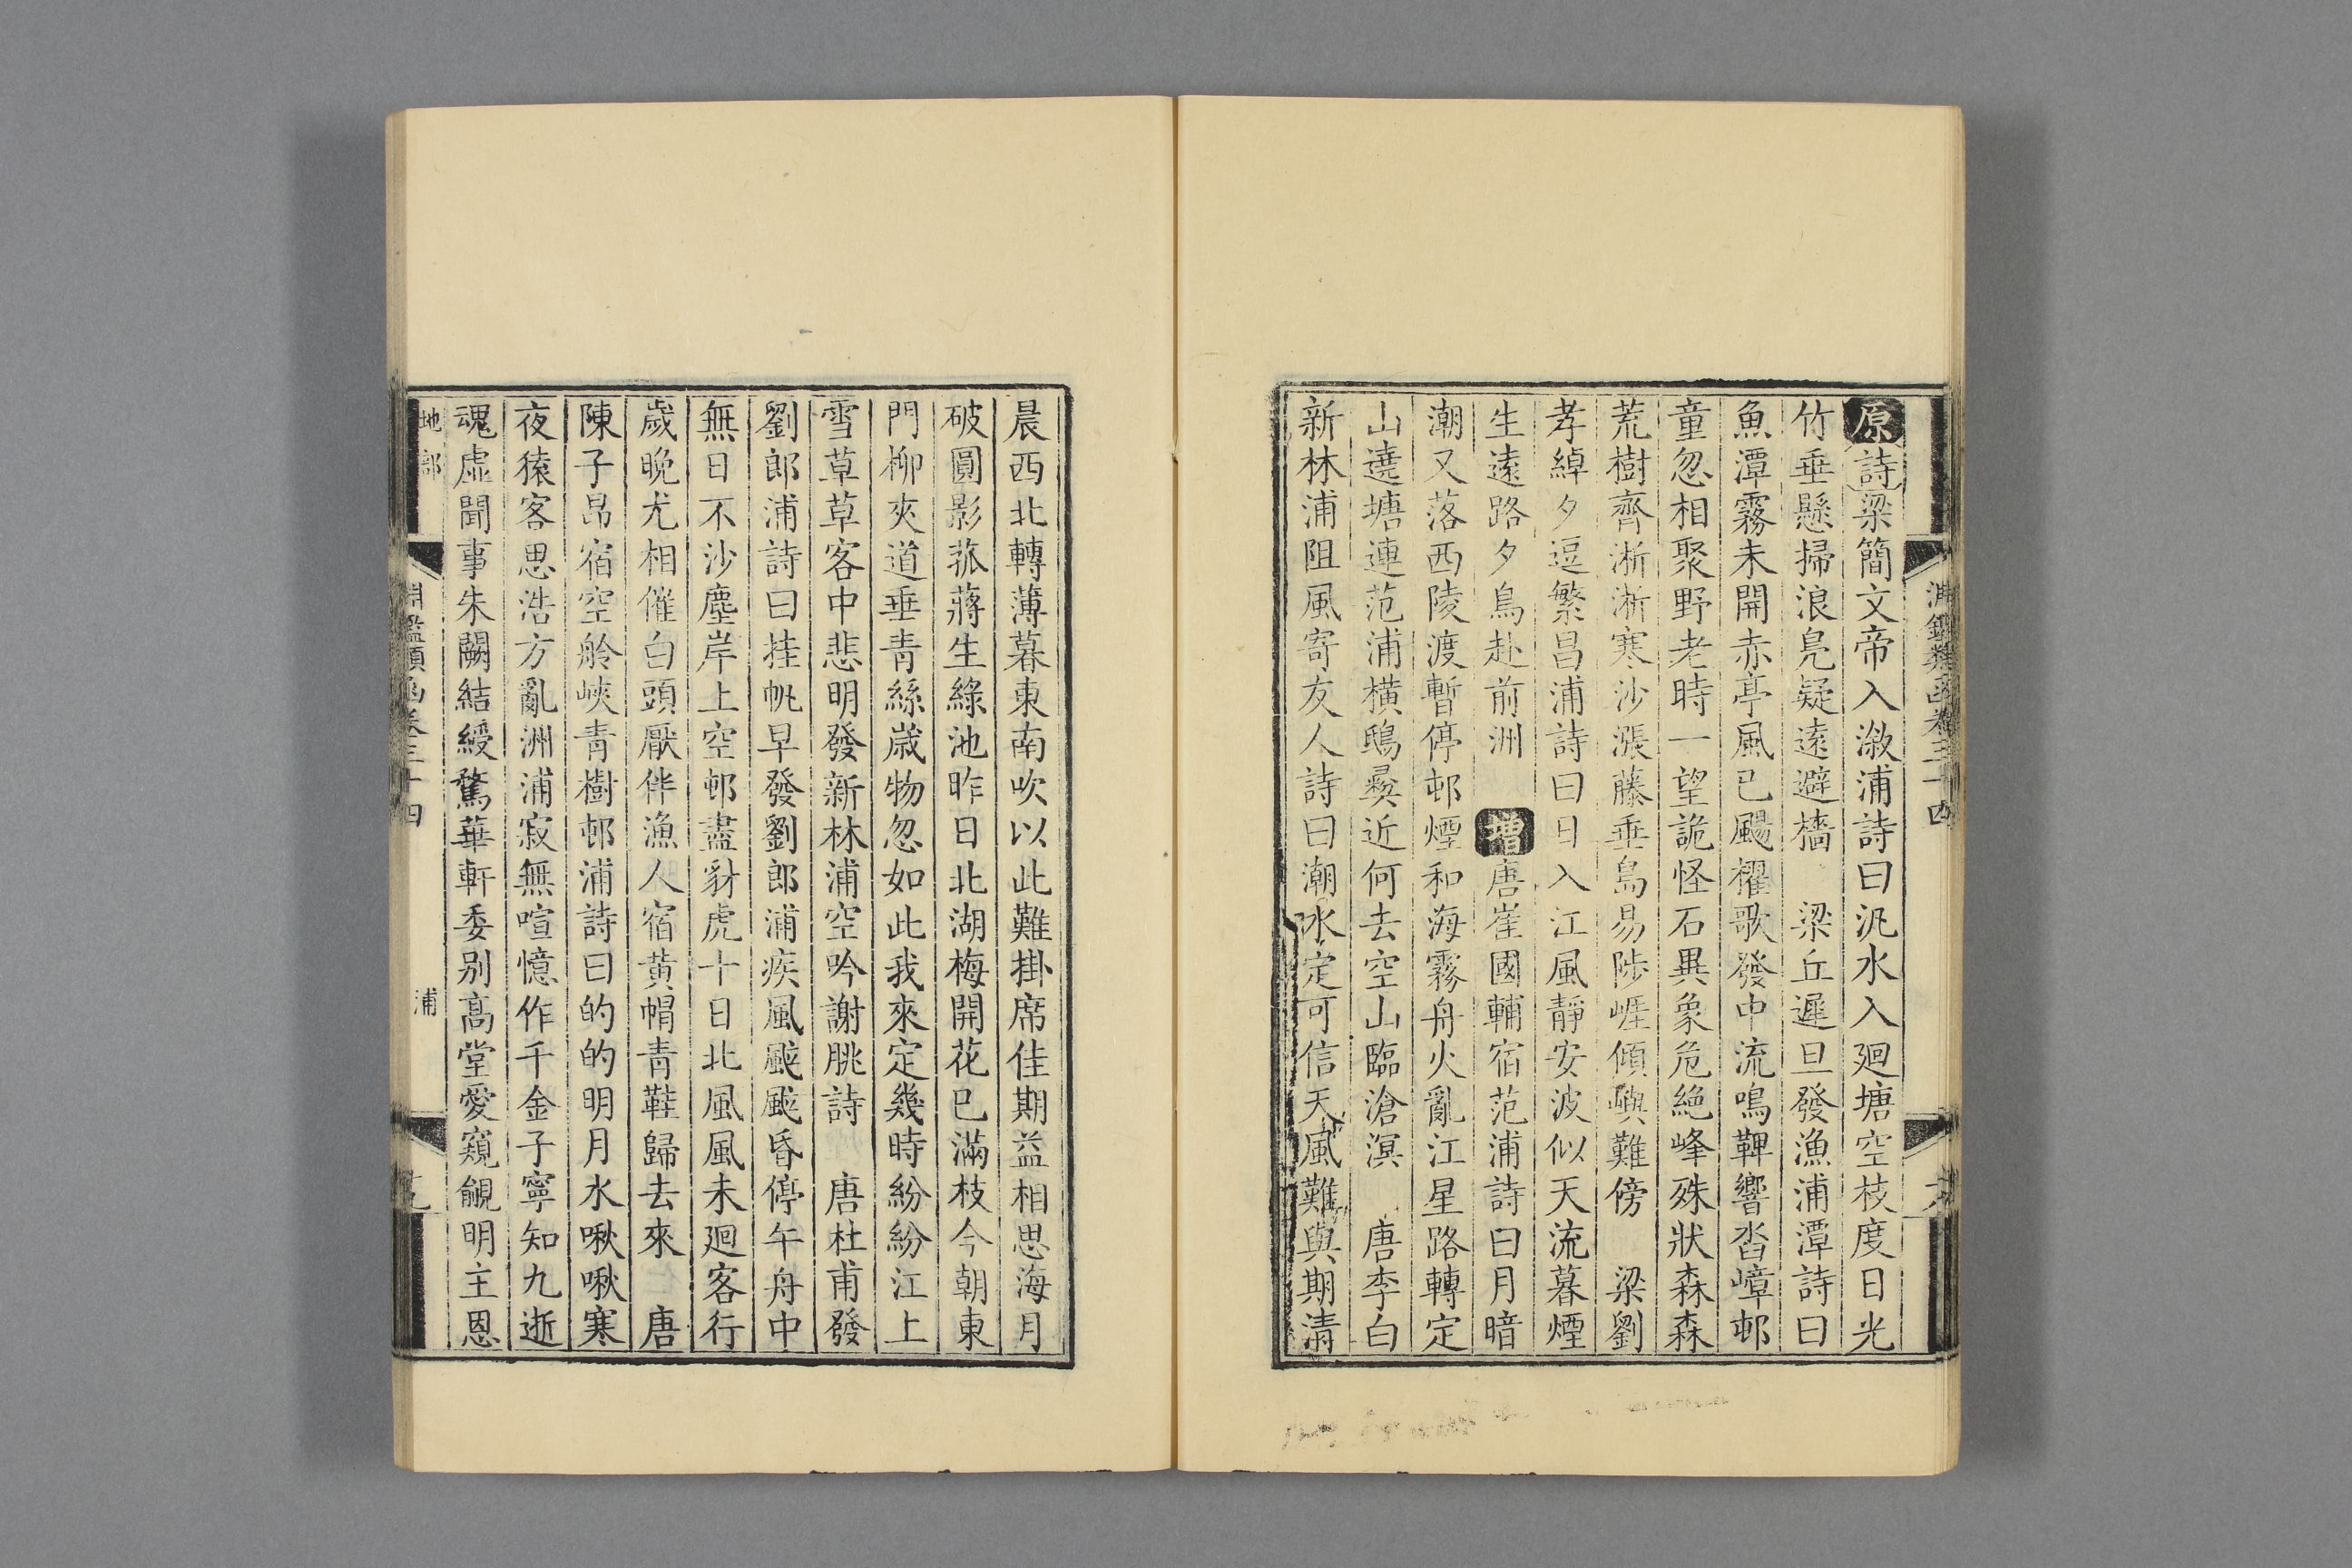 淵鑑類函卷三十四
原詩梁簡文帝入漵浦詩曰汎水入廻塘空枝度日光
竹垂懸掃浪鳧疑遠避檣　梁丘遲旦發漁浦潭詩曰
魚潭霧未開赤亭風已颺櫂歌發中流鳴鞞響沓嶂邨
童忽相聚野老時一望詭怪石異象危絶峰殊狀森森
荒樹齊淅淅寒沙漲藤垂島易陟崕傾嶼難傍　梁劉
孝綽夕逗繁昌浦詩曰日入江風靜安波似天流暮煙
生遠路夕鳥赴前洲　增唐崔國輔宿范浦詩曰月暗
潮又落西陵渡暫停邨煙和海霧舟火亂江星路轉定
山遶塘連范浦橫鴟彝近何去空山臨滄溟　唐李白
新林浦阻風寄友人詩曰潮水定可信天風難與期清
晨西北轉薄暮東南吹以此難掛席佳期益相思海月
破圓影菰蔣生綠池昨日北湖梅開花已滿枝今朝東
門柳夾道垂青絲歲物忽如此我來定幾時紛紛江上
雪草草客中悲明發新林浦空吟謝朓詩　唐杜甫發
劉郎浦詩曰挂帆早發劉郎浦疾風颯颯昏停午舟中
無日不沙塵岸上空邨盡豺虎十日北風風未廻客行
歲晚尤相催白頭厭伴漁人宿黃帽青鞋歸去來　唐
陳子昂宿空舲峽青樹邨浦詩曰的的明月水啾啾寒
夜猿客思浩方亂洲浦寂無喧憶作千金子寧知九逝
魂虛聞事朱闕結綬騖華軒委别高堂愛窺覦明主恩
地部
淵鑑類函卷三十四
浦